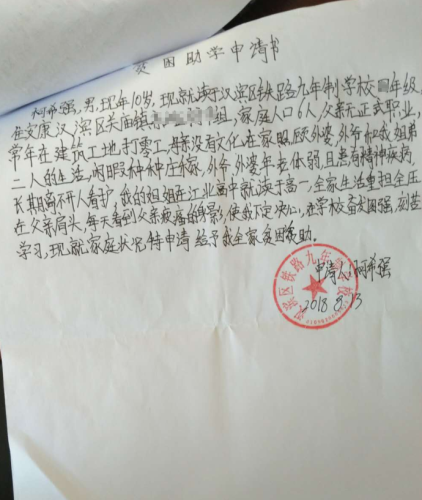 贫困助学申请书
柯希强,男,现年10岁,现就读于汉滨区铁路九年制学校四年级,
在安康汉滨区关庙镇 组,家庭人口6人,父亲无正式职业,
常年在建筑工地打零工,母亲没有文化在家照顾外婆,外爷和我姐弟
二人的生活,闲暇种种庄稼,外爷外婆年老体弱,且患有精神疾病
长期离不开人看护,我的姐姐在江业高中就读于高一,全家生活重担全压
在父亲肩头,每天看到父亲疲惫的身影,使我下定决心,在学校奋发图强,刻苦
学习,现就家庭状况特申请给予我全家贫困资助。
申请人:柯希强
2018.9.13
汉滨区铁路九年制学校